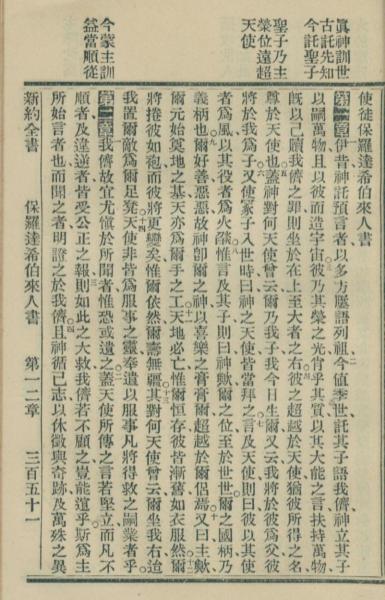 眞神訓世
古託先知
今託聖子
聖子乃主
榮位遠超
天使
今蒙主訓
益當順從
使徒保羅達希伯來人書
第一章伊昔神託預言者以多方屢語列祖今値季世託其子語我儕神立其子
以嗣萬物且以彼而造宇宙彼乃其榮之光肖乎其質以其大能之言扶持萬物
旣以己贖我儕之罪則坐於在上至大者之右彼之超越於天使猶彼所得之名
尊於天使也蓋神對何天使曾云爾乃我子我今日生爾又云我將於彼爲父彼
將於我爲子又使冢子入世時曰神之天使皆當拜之言及天使則曰彼以其使
者爲風以其役者爲火燄惟言及其子則曰神歟爾之位至於世世爾之國柄乃
義柄也爾好善惡惡故神卽爾之神以喜樂之膏膏爾超越於爾侶焉又曰主歟
爾元始奠地之基天亦爲爾手之工天地必亡惟爾恒存彼皆漸舊如衣服然爾
將捲彼如袍而彼將更變矣惟爾依然爾壽無疆其對何天使曾云爾坐我右迨
我置爾敵爲爾足凳天使非皆爲服事之靈奉遣以服事凡將得救之嗣業者乎
第二章我儕故宜尤愼於所聞者惟恐或遺之蓋天使所傳之言若堅立而凡不
順者及違逆者皆受公正之報則如此之大救我儕若不顧之豈能逭乎斯爲主
所始言者也而聞之者明證之於我儕且神循己志以休徵與奇跡及萬殊之異
新約全書 保羅達希伯來人書 第一二章 三百五十一